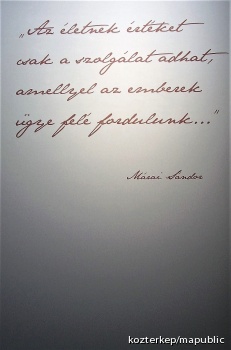 „Az életnek értéket
csak a szolgálat adhat,
amellyel az emberek
ügye felé fordulunk..."
Márai Sándor
kozterkep/mapublic